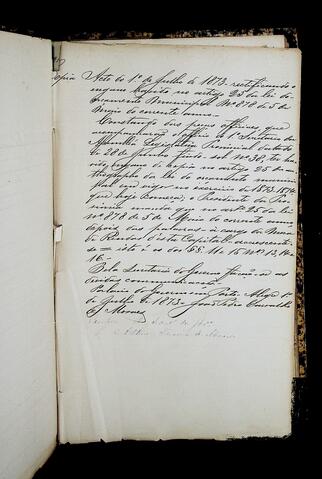 Copia Acto de 1º de Julho de 1873 rectificando o
engano havido no artigo 25 da lei do
orçamento Municipal Nº 878 de 5 de
Maio do corrente anno
Constando dos papeis officiaes, que
acompanharão o officio da Secretaria da
Assembléa Legislativa Provincial datado
de 28 de Junho findo sob Nº 38, ter ha-
vido engano de copia no artigo 25 do au-
thographo da lei do orçamento munici-
pal em vigor no exercicio de 1873-1874
que hoje começa, o Presidente da Pro-
vincia manda que no artº 25 da lei
Nº 878 de 5 de Maio do corrente anno
depois das palavras à cargo da Mesa
de Rendas d'esta Capital - accrescente-
se = isto é os dos §§. 11 a 15 Nº 13, 14 e
16 -
Pela Secretaria do Governo fação-se as
devidas communicações.
Palacio do Governo em Porto Alegre 1º
de Julho de 1873 - João Pedro Carvalho
de Moraes